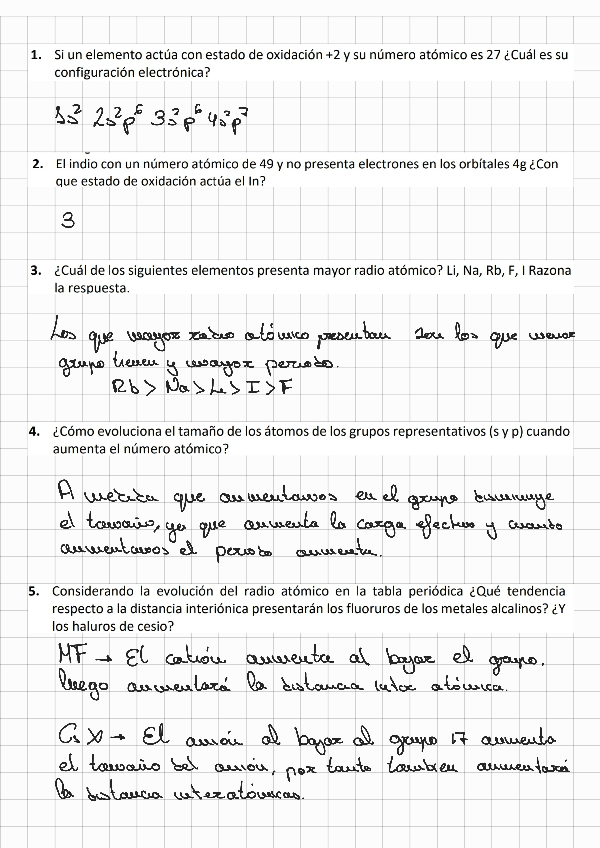 1. Si un elemento actúa con estado de oxidación +2 y su número atómico es 27 ¿Cuál es su
configuración electrónica?
1s² 2s²p⁶ 3s²p⁶ 4s²p⁷
2. El indio con un número atómico de 49 y no presenta electrones en los orbítales 4g ¿Con
que estado de oxidación actúa el In?
3
3. ¿Cuál de los siguientes elementos presenta mayor radio atómico? Li, Na, Rb, F, I Razona
la respuesta.
Los que mayor radio atómico presentan son los que menor
grupo tienen y mayor periodo.
Rb > Na > Li > I > F
4. ¿Cómo evoluciona el tamaño de los átomos de los grupos representativos (s y p) cuando
aumenta el número atómico?
A medida que aumentamos en el grupo disminuye
el tamaño, ya que aumenta la carga efectiva y cuando
aumentamos el periodo aumenta.
5. Considerando la evolución del radio atómico en la tabla periódica ¿Qué tendencia
respecto a la distancia interiónica presentarán los fluoruros de los metales alcalinos? ¿Y
los haluros de cesio?
MF → El catión aumenta al bajar el grupo.
luego aumentará la distancia inter atómica.
Cs X → El anión al bajar al grupo 17 aumenta
el tamaño del anión, por tanto tambien aumentará
la distancia interatómicas.